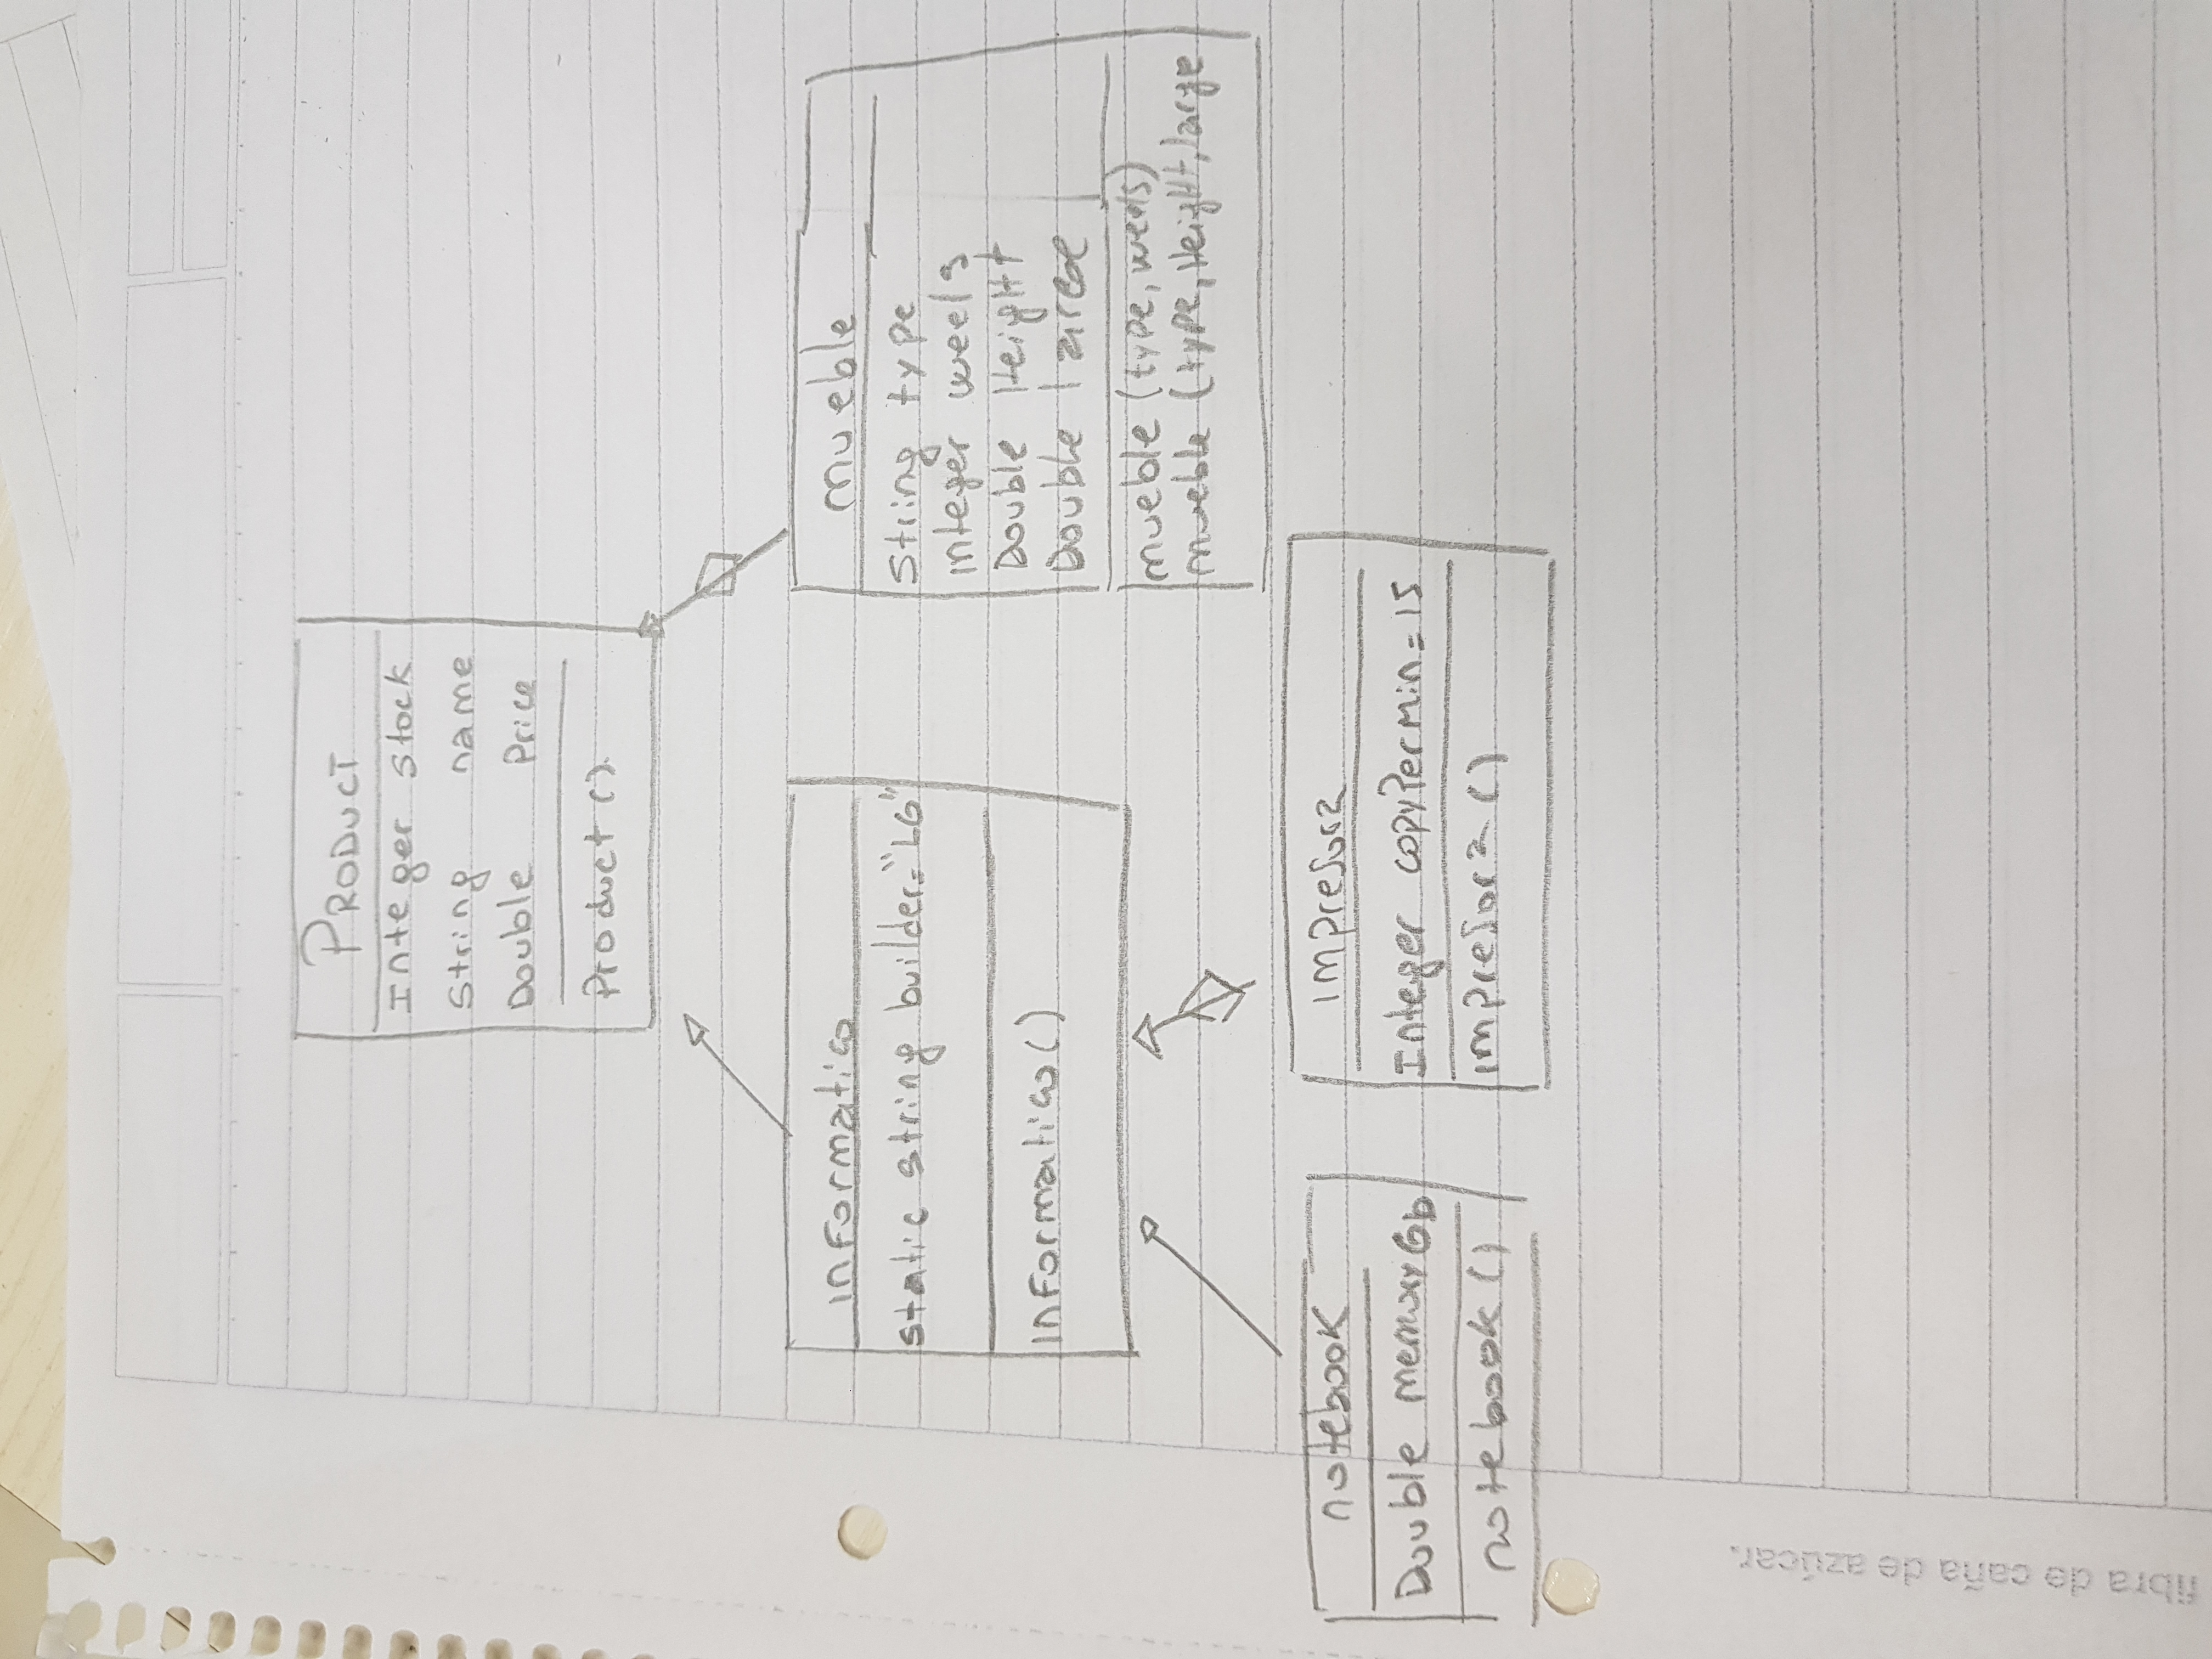 PRODUCT
Integer stock
String name
Double Price
Product ().
informatico
static string builder="LG"
informatico()
mueble
String type
integer weels
Double Height
Double large
mueble (type, weels)
mueble (type, Height, large
notebook
Double memoryGb
notebook ()
impresora
Integer copyPerMin = 15
impresora ()
fibra de caña de azúcar.